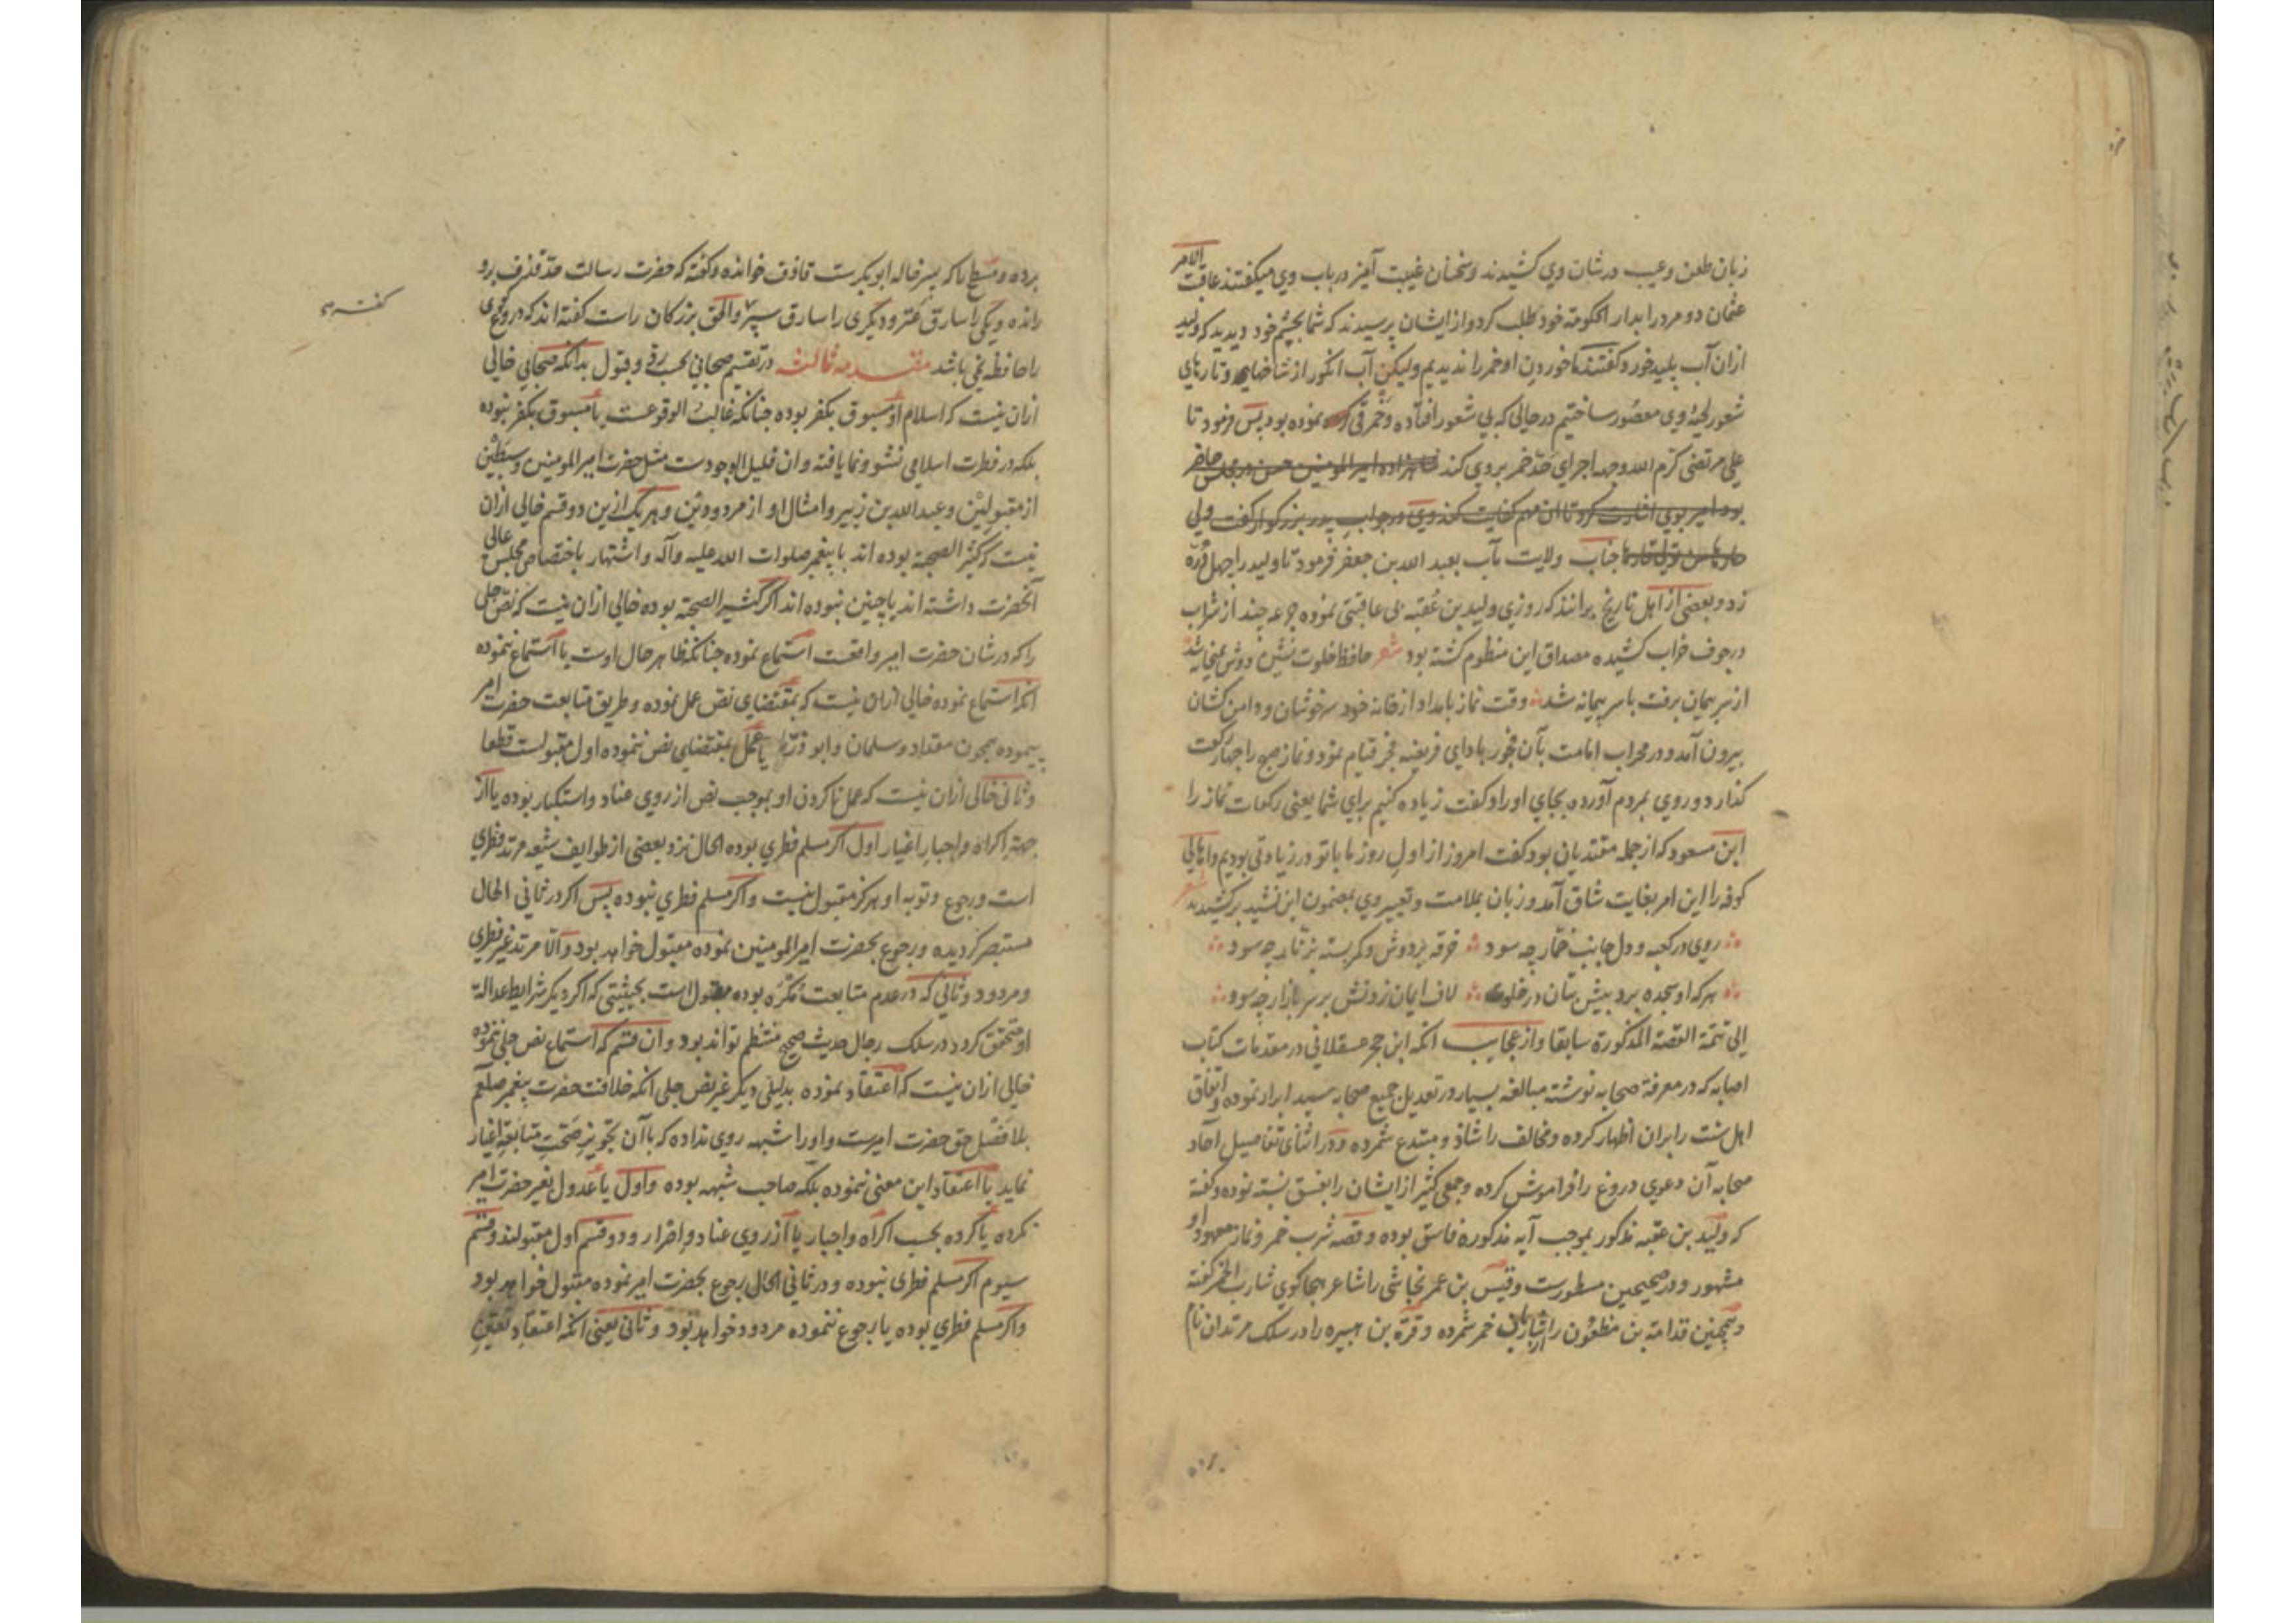 زبان طعن وعیب در شان وی کشیدند وسخنان غیبت آمیز در باب وی میکفتند عاقبت الامر
عثمان دو مرد را بدار الحکومة خود طلب کرد واز ایشان پرسیدند که شما بچشم خود دیدید که ولید
ازان آب پلید خورد کفتند ما خوردن او خمر را ندیدیم ولیکن آب انکور از شاخهای وتارهای
شعور لحیۀ وی معصور ساختیم در حالی که بی شعور افتاده وخمر قی نموده بود پس فرمود تا
علی مرتضی کرّم الله وجهه اجرای حدّ خمر بروی کند شاهزاده امیر المومنین حسن در مجلس حاضر
بود امیر بوی اشارت کرد تا ان مهم کفایت کند وی در جواب پدر بزرکوار کفت ولی
حارها من تولی قارها جناب ولایت مآب بعبد الله بن جعفر فرمود تا ولید را چهل دُرّه
زد وبعضی از اهل تاریخ برانند که روزی ولید بن عُقبه بی عاقبتی نموده جرعه چند از شراب
در جوف خراب کشیده مصداق این منظوم کشته بود شعر حافظ خلوت نشین دوش بمیخانه شد
از سر پیمان برفت با سر پیمانه شد وقت نماز بامداد از خانه خود سرخوشان ودامن کشان
بیرون آمد ودر محراب امامت بآن فجور بادای فریضه فجر قیام نمود ونماز صبح را چهار رکعت
کذارد وروی بمردم آورده بجای اوراد کفت زیاده کنیم برای شما یعنی رکعات نماز را
ابن مسعود که از جمله مقتدیان بود کفت امروز از اول روز ما با تو در زیادتی بودیم واهالی
کوفه را این امر بغایت شاق آمد وزبان بملامت وتعییر وی بمضمون این نشید برکشیدند شعر
روی در کعبه ودل جانب خمّار چه سود خرقه بردوش وکمر بسته بزنّار چه سود
هر که او سجده برد پیش بتان در خلوت لاف ایمان زدنش بر سر بازار چه سود
الی تتمة القصة المذکورة سابقا واز عجایب انکه ابن حجر عسقلانی در مقدمات کتاب
اصابه که در معرفة صحابه نوشته مبالغه بسیار در تعدیل جمیع صحابه سید ابرار نموده واتفاق
اهل سنت را بران اظهار کرده ومخالف را شاذ ومبتدع شمرده ودر اثنای تفاصیل آحاد
صحابه آن دعوی دروغ را فراموش کرده وجمعی کثیر از ایشان را بفسق نسبته نموده وکفته
که ولید بن عقبه مذکور بموجب آیه مذکوره فاسق بوده وقصه شرب خمر ونماز معهود او
مشهور ودر صحیحین مسطورست وقیس بن عمر نجاشی را شاعر هجا کوی شارب الخمر کفته
وهمچنین قدامة بن مظعون را از شاربان خمر شمرده وقرّة بن هبیره را در سلک مرتدان نام
برده ومسطح را که پسر خاله ابو بکرست قاذف خوانده وکفته که حضرت رسالت حدّ قذف برو
رانده ویکی را سارق عنز ودیکری را سارق سپر والحق بزرکان راست کفته اند که دروغ کوی
را حافظه نمی باشد مقدمه ثالثه در تقسیم صحابی بحسب ردّ وقبول بدانکه صحابی خالی
کفته
ازان نیست که اسلام او مسبوق بکفر بوده چنانکه غالب الوقوعست یا مسبوق بکفر نبوده
بلکه در فطرت اسلامی نشو ونما یافته وان قلیل الوجودست مثل حضرت امیر المومنین وسبطین
از مقبولین وعبد الله بن زبیر وامثال او از مردودین وهر یک ازین دو قسم خالی ازان
نیست که کثیر الصحبة بوده اند با پیغمبر صلوات الله علیه وآله واشتهار باختصاص مجلس عالی
آنحضرت داشته اند یا چنین نبوده اند اکر کثیر الصحبة بوده خالی ازان نیست که نصّ جلی
را که در شان حضرت امیر واقعست استماع نموده چنانکه ظاهر حال اوست یا استماع ننموده
انکه استماع نموده خالی ازان نیست که بمقتضای نص عمل نموده وطریق متابعت حضرت امیر
پیموده همچون مقداد وسلمان وابو ذرّ یا عمل بمقتضای نص ننموده اول مقبولست قطعا
وثانی خالی ازان نیست که عمل ناکردن او بموجب نص از روی عناد واستکبار بوده یا از
جهة اکراه واجبار اغیار اول اکر مسلم فطری بوده الحال نزد بعضی از طوایف شیعه مرتد فطری
است ورجوع وتوبه او هرکز مقبول نیست واکر مسلم فطری نبوده پس اکر در ثانی الحال
مستبصر کردیده ورجوع بحضرت امیر المومنین نموده مقبول خواهد بود والّا مرتد غیر فطری
ومردود وثانی که در عدم متابعت مُکرَه بوده مقبول است بحیثیتی که اکر دیکر شرایط عدالة
او متحقق کردد در سلک رجال حدیث صحیح منتظم تواند بود وان قسم که استماع نص جلی ننموده
خالی ازان نیست که اعتقاد نموده بدلیلی دیکر غیر نص جلی انکه خلافت حضرت پیغمبر صلعم
بلا فصل حق حضرت امیرست واورا شبهه روی نداده که با آن تجویز صحّتِ متابعة اغیار
نماید یا اعتقاد این معنی ننموده بلکه صاحب شبهه بوده واول یا عدول بغیر حضرت امیر
نکرده یا کرده بحسب اکراه واجبار یا از روی عناد واضرار ودو قسم اول مقبولند وقسم
سیوم اکر مسلم فطری نبوده ودر ثانی الحال رجوع بحضرت امیر نموده مقبول خواهد بود
واکر مسلم فطری بوده یا رجوع ننموده مردود خواهد بود وثانی یعنی انکه اعتقاد